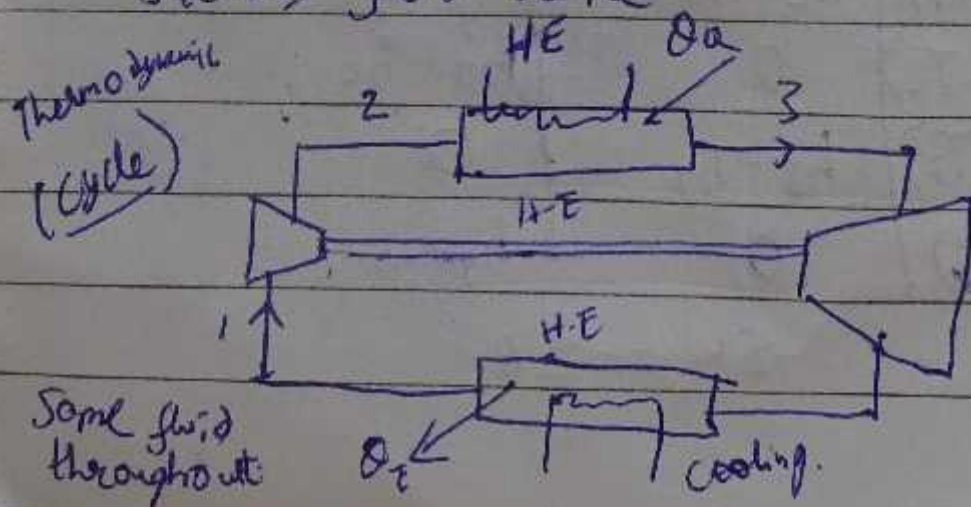 HE Qa
Thermodynamic
(Cycle)
2
3
H-E
1
H.E
Same fluid
throughout
Qr
Cooling.